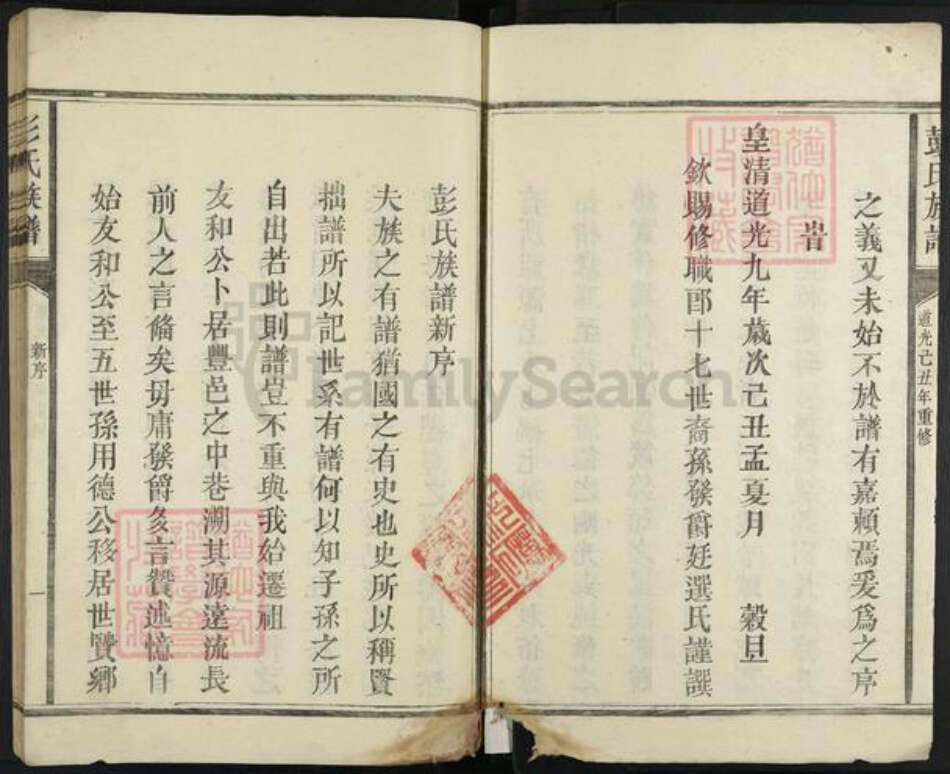 彭氏族譜
道光己丑年重修
之義又未始不於譜有嘉賴焉爰爲之序
旹
皇清道光九年歲次己丑孟夏月 穀旦
欽賜修職郎十七世裔孫發爵廷選氏謹譔
彭氏族譜新序
夫族之有譜猶國之有史也史所以稱賢
拙譜所以記世系有譜何以知子孫之所
自出若此則譜豈不重與我始遷祖
友和公卜居豐邑之中巷溯其源遠流長
前人之言備矣毋庸發爵多言贊述憶自
始友和公至五世孫用德公移居世賢鄉
彭氏族譜
新序
一
FamilySearch